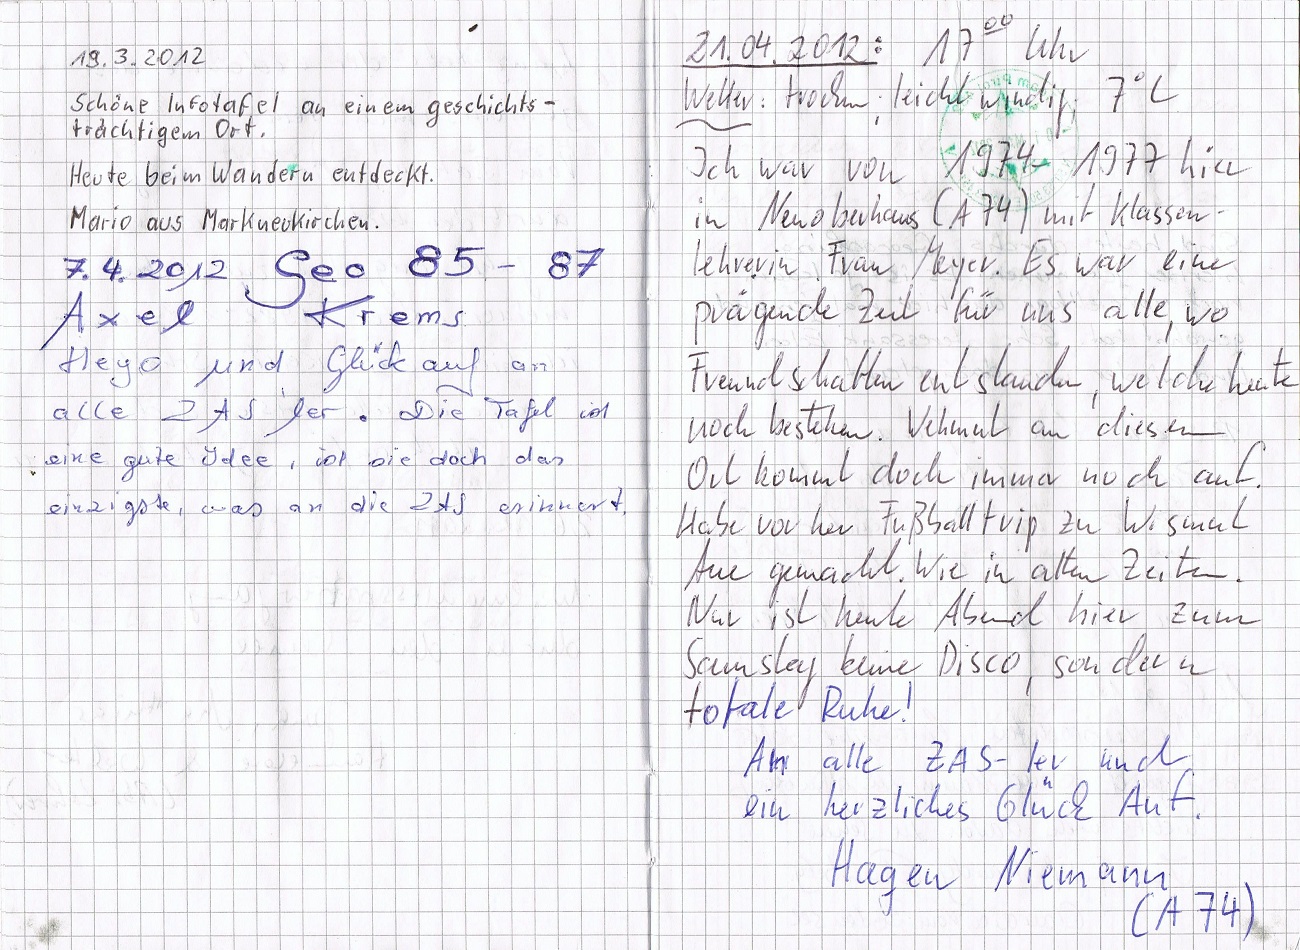 19.3.2012
Schöne Infotafel an einem geschichts-
trächtigem Ort.
Heute beim Wandern entdeckt.
Mario aus Markneukirchen.
7.4.2012 Geo 85 - 87
Axel Krems
Heyo und Glück auf an
alle ZAS'ler. Die Tafel ist
eine gute Idee, ist sie doch das
einzigste, was an die ZAS erinnert.
21.04.2012: 17⁰⁰ Uhr
Wetter: trocken, leicht windig, 7°C
Ich war von 1974- 1977 hier
in Neuoberhaus (A74) mit Klassen-
lehrerin Frau Meyer. Es war eine
prägende Zeit für uns alle, wo
Freundschaften entstanden, welche heute
noch bestehen. Wehmut an diesem
Ort kommt doch immer noch auf.
Habe vorher Fußballtrip zu Wismut
Aue gemacht. Wie in alten Zeiten.
Nur ist heute Abend hier zum
Samstag keine Disco, sondern
totale Ruhe!
An alle ZAS-ler und
ein herzliches Glück Auf.
Hagen Niemann
(A 74)